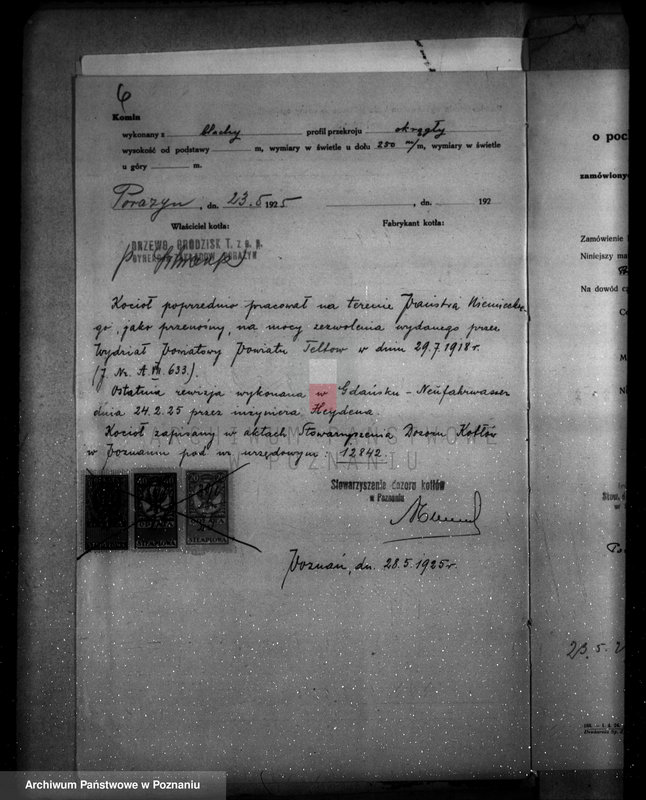 6
Komin
wykonany z blachy profil przekroju okrągły
wysokość od podstawy m, wymiary w świetle u dołu 250 m/m, wymiary w świetle
u góry m.
Porażyn, dn. 23.5 1925 , dn. 192
Właściciel kotła: Fabrykant kotła:
DRZEWO, GRODZISK T. z o. p.
Kocioł poprzednio pracował na terenie Państwa Niemieckie-
go, jako przenośny, na mocy zezwolenia wydanego przez
Wydział Powiatowy Powiatu Teltow w dniu 29.7.1918 r.
(J. Nr. A VII. 633.).
Ostatnia rewizja wykonana w Gdańsku - Neufahrwasser
dnia 24.2.25 przez inżyniera Heydena.
Kocioł zapisany w aktach Stowarzyszenia Dozoru Kotłów
w Poznaniu pod nr. urzędowym: 12842.
ARCHIWUM PAŃSTWOWE
W POZNANIU
Stowarzyszenie dozoru kotłów
w Poznaniu
OPŁATA
STEMPLOWA
OPŁATA
STEMPLOWA
Poznań, dn. 28.5.1925 r.
o poc
zamówionyc
Zamówienie
Niniejszy ma
Na dowód c
Co
M
Ni
Stow. d
w
23.5.2
Archiwum Państwowe w Poznaniu